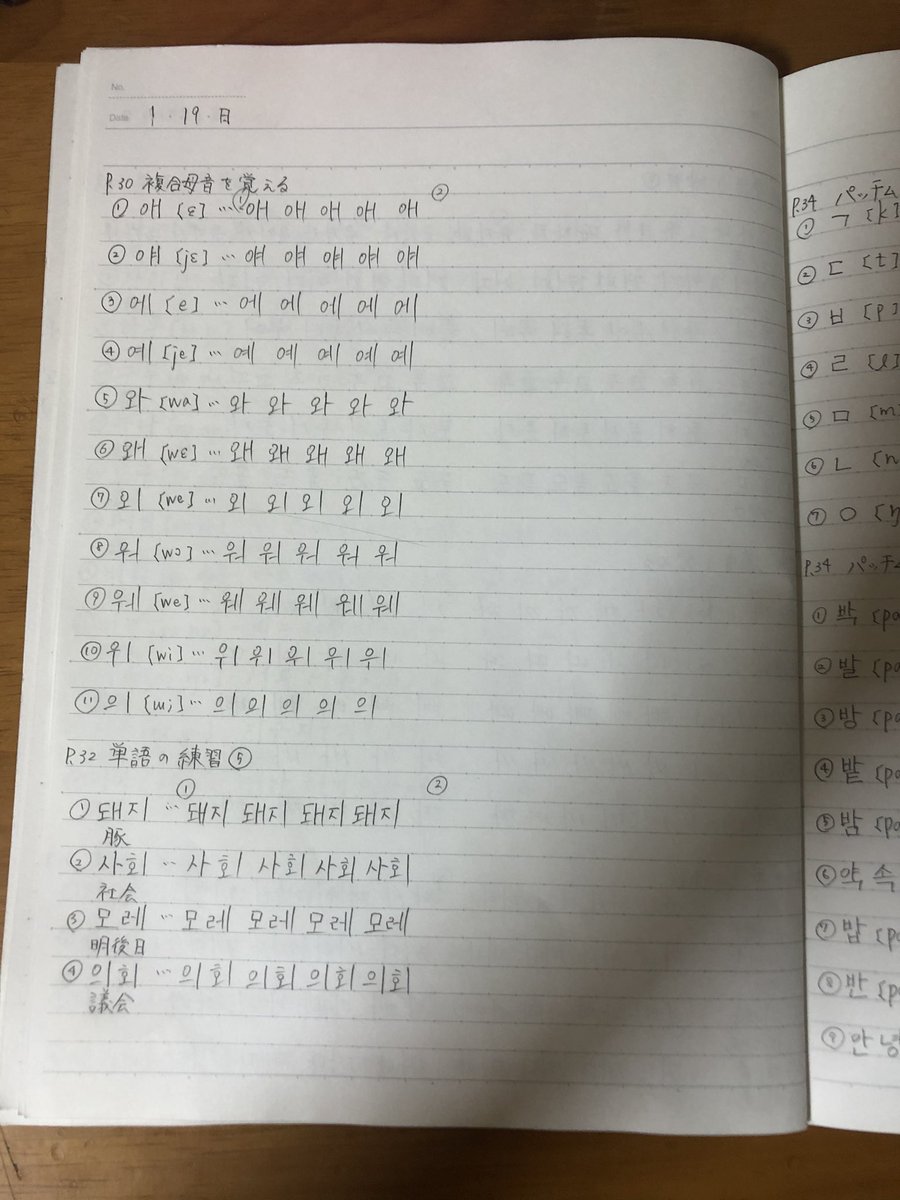 No.
Date 1・19・日
P.30 複合母音を覚える
① ②
① 애 [ɛ] … 애 애 애 애 애
② 얘 [jɛ] … 얘 얘 얘 얘 얘
③ 에 [e] … 에 에 에 에 에
④ 예 [je] … 예 예 예 예 예
⑤ 와 [wa] … 와 와 와 와 와
⑥ 왜 [wɛ] … 왜 왜 왜 왜 왜
⑦ 외 [we] … 외 외 외 외 외
⑧ 워 [wɔ] … 워 워 워 워 워
⑨ 웨 [we] … 웨 웨 웨 웨 웨
⑩ 위 [wi] … 위 위 위 위 위
⑪ 의 [ɯi] … 의 의 의 의 의
P.32 単語の練習⑤
① ②
① 돼지 … 돼지 돼지 돼지 돼지
豚
② 사회 … 사회 사회 사회 사회
社会
③ 모레 … 모레 모레 모레 모레
明後日
④ 의회 … 의회 의회 의회 의회
議会
P.34 パッチム
① ㄱ [k]
② ㄷ [t]
③ ㅂ [p]
④ ㄹ [l]
⑤ ㅁ [m
⑥ ㄴ [n
⑦ ㅇ [ŋ
P.34 パッチム
① 박 [pa
② 발 [pa
③ 방 [pa
④ 밭 [pa
⑤ 밤 [pa
⑥ 약속
⑦ 밥 [pa
⑧ 반 [pa
⑨ 안녕